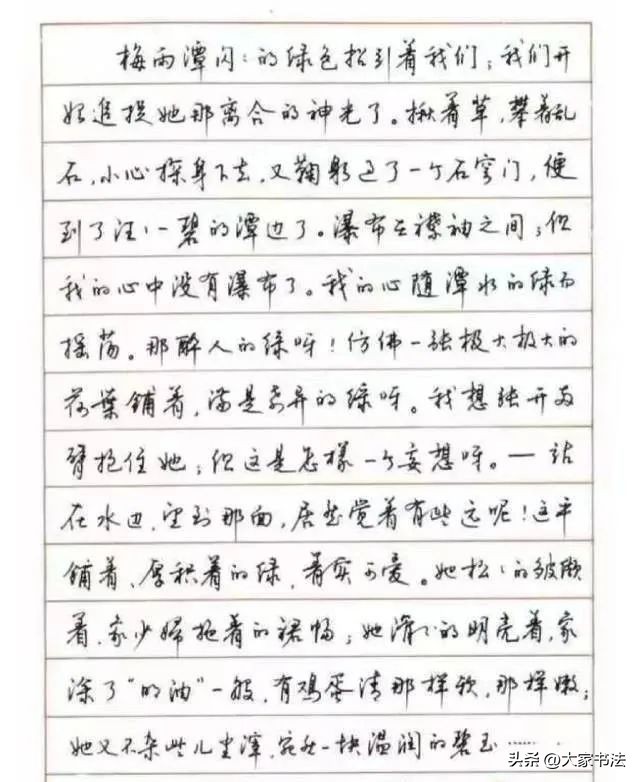 梅雨潭闪：的绿色招引着我们；我们开
始追捉她那离合的神光了。揪着草，攀着乱
石，小心探身下去，又鞠躬过了一个石穹门，便
到了汪：一碧的潭边了。瀑布在襟袖之间；但
我的心中没有瀑布了。我的心随潭水的绿而
摇荡。那醉人的绿呀！仿佛一张极大极大的
荷葉鋪着，满是奇异的绿呀。我想张开两
臂抱住她；但这是怎樣一个妄想呀。—站
在水边，望到那面，居然觉着有些远呢！这平
鋪着、厚积着的绿，着实可爱。她松：的皱缬
着，象少婦拖着的裙幅；她滑：的明亮着，象
涂了“明油”一般，有鸡蛋清那样软，那样嫩；
她又不杂些儿尘滓，宛然一块温润的碧玉……
头条 @大家书法